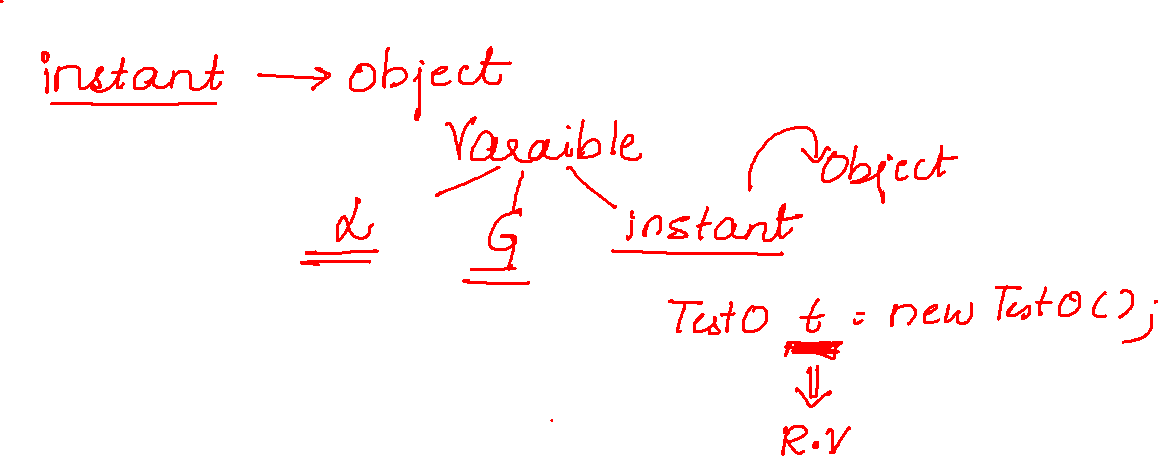 instant → object
Varaible
L G instant Object
Test0 t = new Test0();
R.V